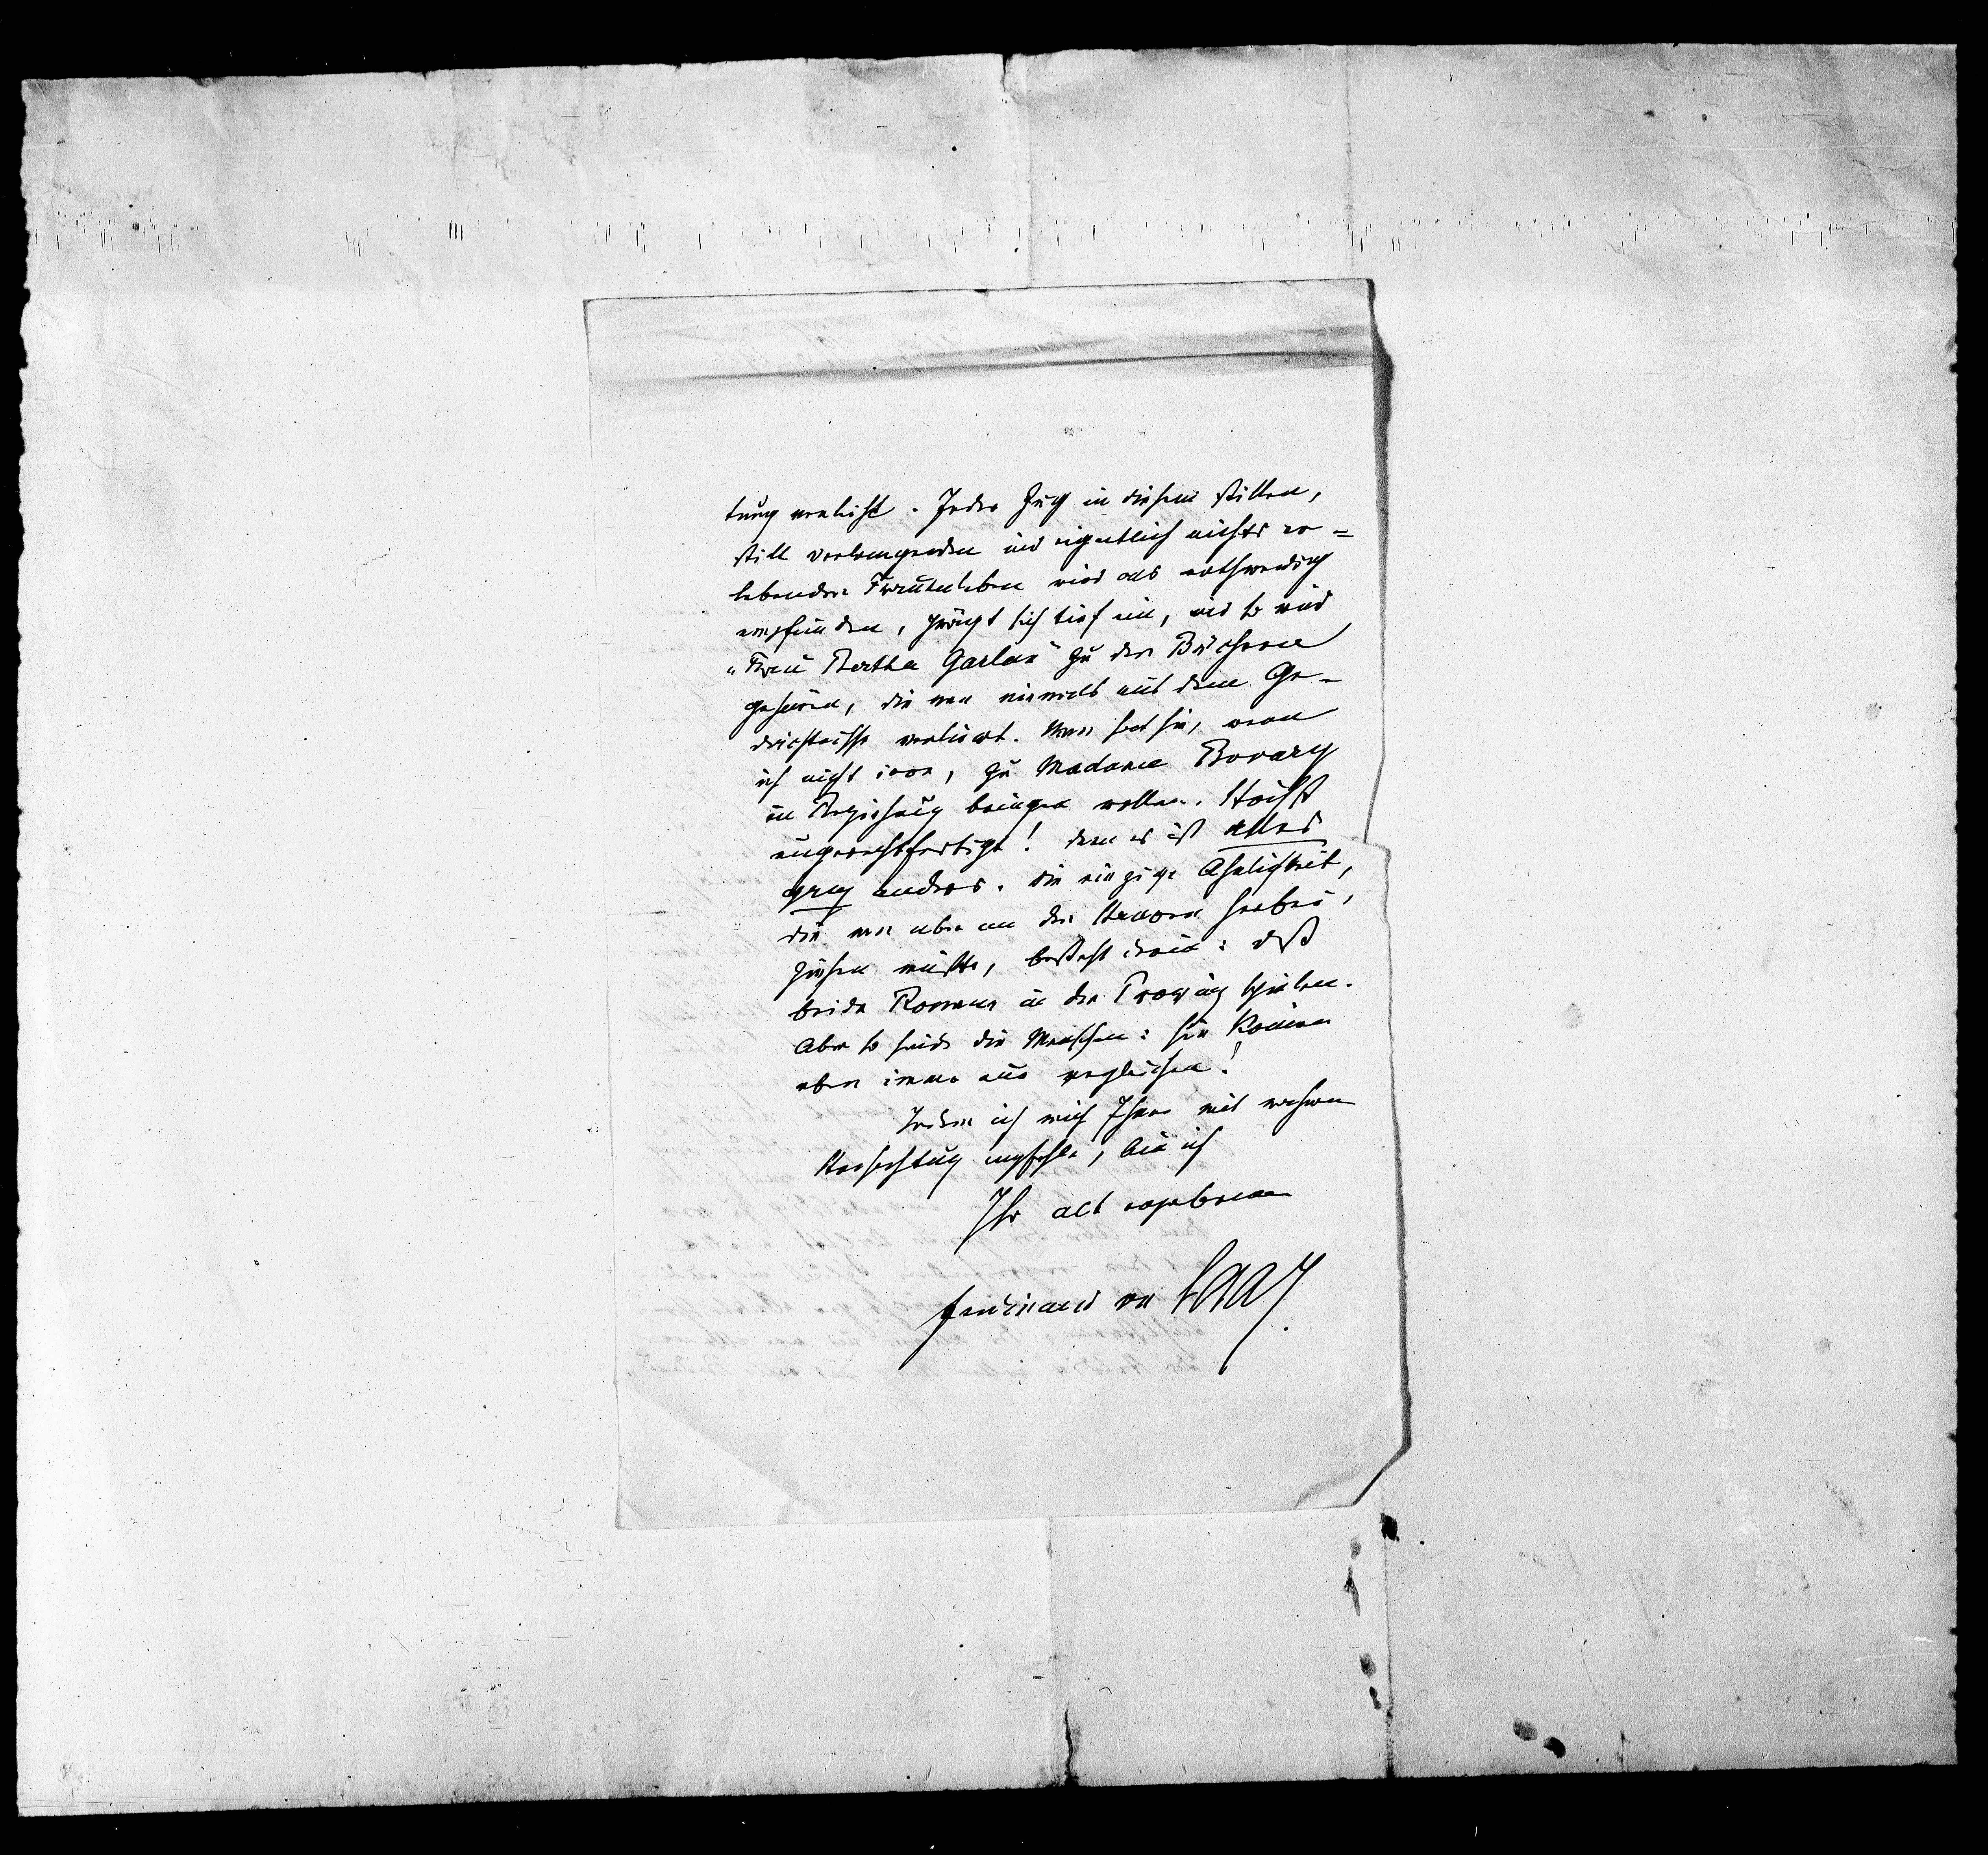 tung verleiht. Jeder Zug in diesem stillen,
still verlangenden und eigentlich nichts er=
lebenden Frauenleben wird als nothwendig
empfunden, prägt sich tief ein, und so wird
„Frau Bertha Garlan" zu den Büchern
gehören, die man niemals aus dem Ge-
dächtnisse verliert. Man hat sie, wenn
ich nicht irre, zu Madame Bovary
in Beziehung bringen wollen. Höchst
ungerechtfertigt! denn es ist alles
ganz anders. Die einzige Ähnlichkeit,
die man aber an den Haaren herbei,
ziehen müßte, besteht darin: daß
beide Romane in der Provinz spielen.
Aber so sind die Menschen: sie können
eben immer nur vergleichen!
Indem ich mich Ihnen mit wahrer
Hochachtung empfehle, bin ich
Ihr alt ergebener
Ferdinand von Saar.